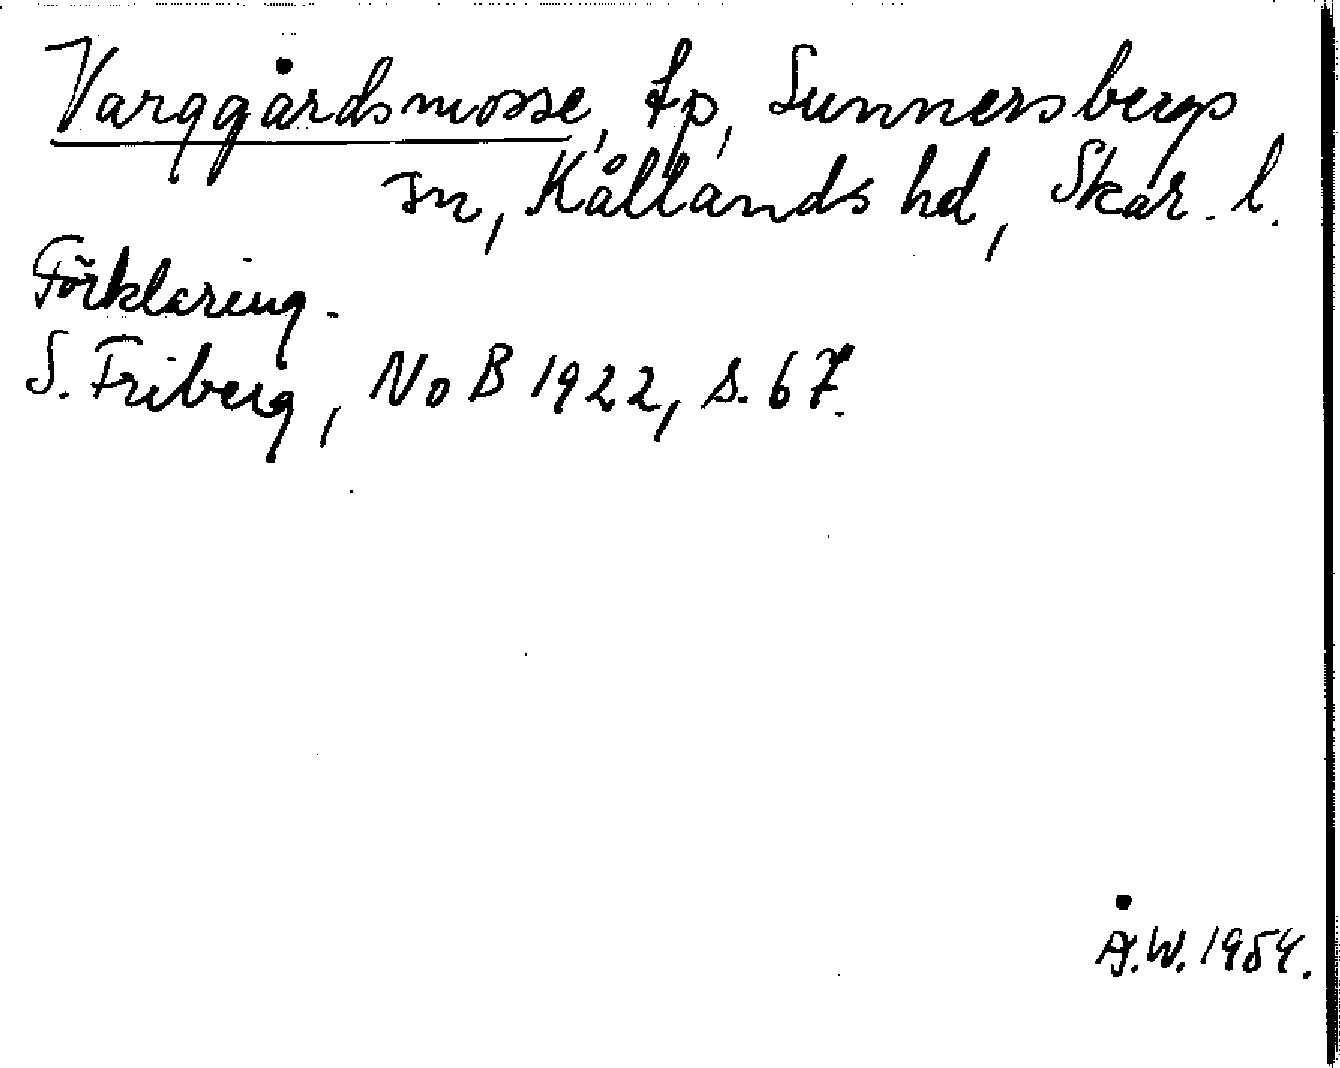 Varggårdsmosse, tp, Sunnersbergs
sn, Kållands hd, Skar. l.
Förklaring.
S. Friberg, NoB 1922, s. 67.
Åg.W. 1954.